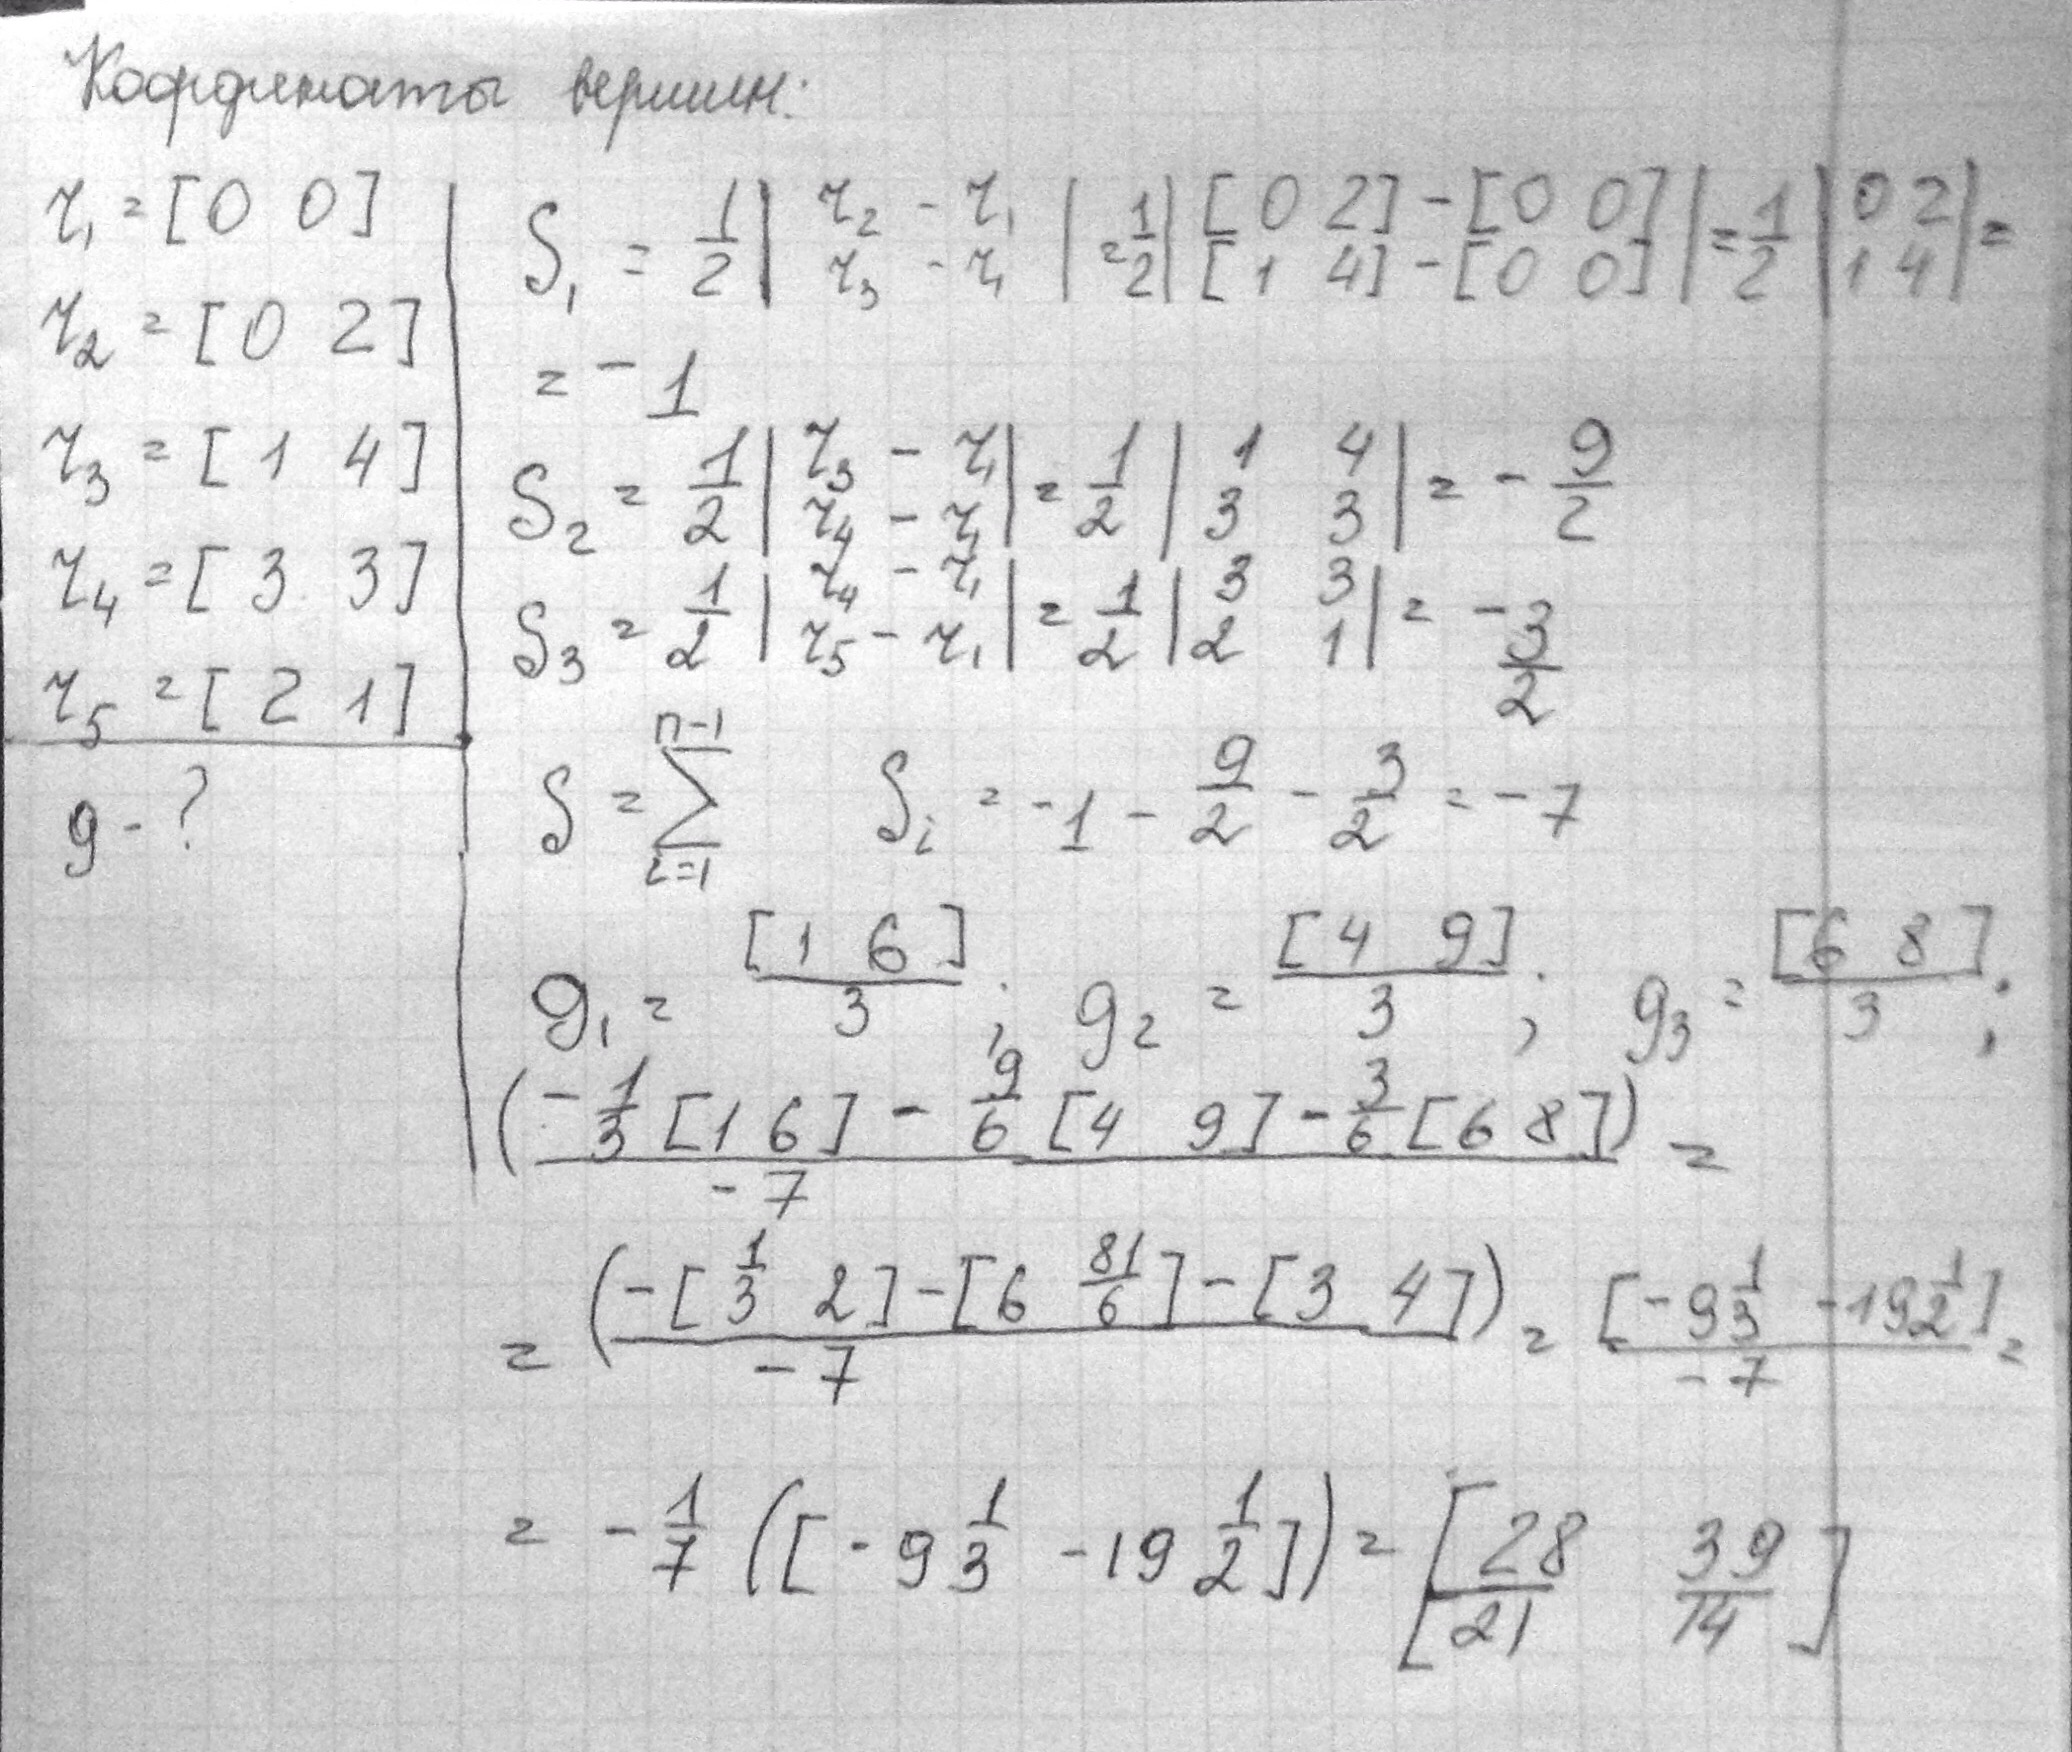 Координаты вершин:
r₁ = [0 0]
r₂ = [0 2]
r₃ = [1 4]
r₄ = [3 3]
r₅ = [2 1]
g - ?
S₁ = 1/2 | r₂ - r₁ ; r₃ - r₁ | = 1/2 | [0 2] - [0 0] ; [1 4] - [0 0] | = 1/2 | 0 2 ; 1 4 | =
= -1
S₂ = 1/2 | r₃ - r₁ ; r₄ - r₁ | = 1/2 | 1 4 ; 3 3 | = - 9/2
S₃ = 1/2 | r₄ - r₁ ; r₅ - r₁ | = 1/2 | 3 3 ; 2 1 | = - 3/2
S = ∑ i=1 n-1 Sᵢ = -1 - 9/2 - 3/2 = -7
g₁ = [1 6]/3 ; g₂ = [4 9]/3 ; g₃ = [6 8]/3 ;
(-1/3 [1 6] - 9/6 [4 9] - 3/6 [6 8]) / -7 =
= (-[1/3 2] - [6 81/6] - [3 4]) / -7 = [-9 1/3 -19 1/2] / -7 =
= - 1/7 ([-9 1/3 -19 1/2]) = [28/21 39/14]